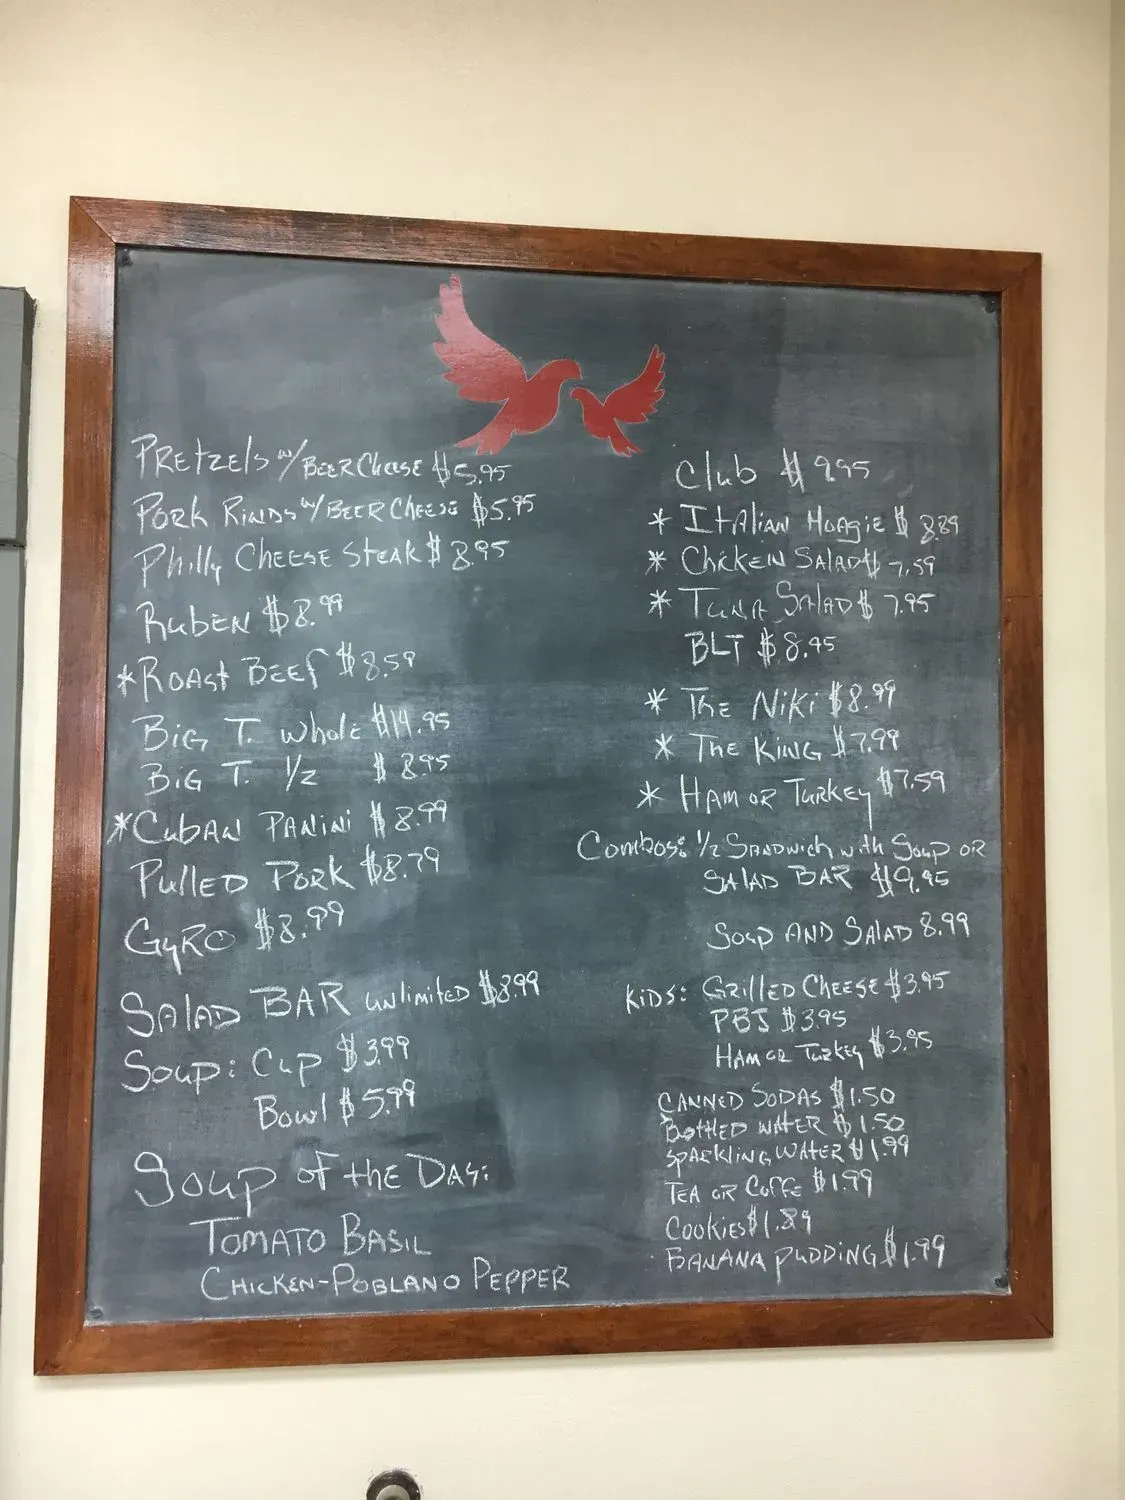 Pretzels w/ Beer Cheese $5.95
Pork Rinds w/ Beer Cheese $5.95
Philly Cheese Steak $8.95
Ruben $8.99
*Roast Beef $8.59
Big T. whole $14.95
Big T. 1/2 $8.95
*Cuban Panini $8.99
Pulled Pork $8.79
Gyro $8.99
Salad Bar unlimited $8.99
Soup: Cup $3.99
Bowl $5.99
Soup of the Day:
Tomato Basil
Chicken-Poblano Pepper
Club $9.95
* Italian Hoagie $8.89
* Chicken Salad $7.59
* Tuna Salad $7.95
BLT $8.95
* The Niki $8.99
* The King $7.99
* Ham or Turkey $7.59
Combos: 1/2 Sandwich with Soup or
Salad Bar $9.95
Soup and Salad 8.99
Kids: Grilled Cheese $3.95
PBJ $3.95
Ham or Turkey $3.95
Canned Sodas $1.50
Bottled Water $1.50
Sparkling Water $1.99
Tea or Coffe $1.99
Cookies $1.89
Banana Pudding $1.99